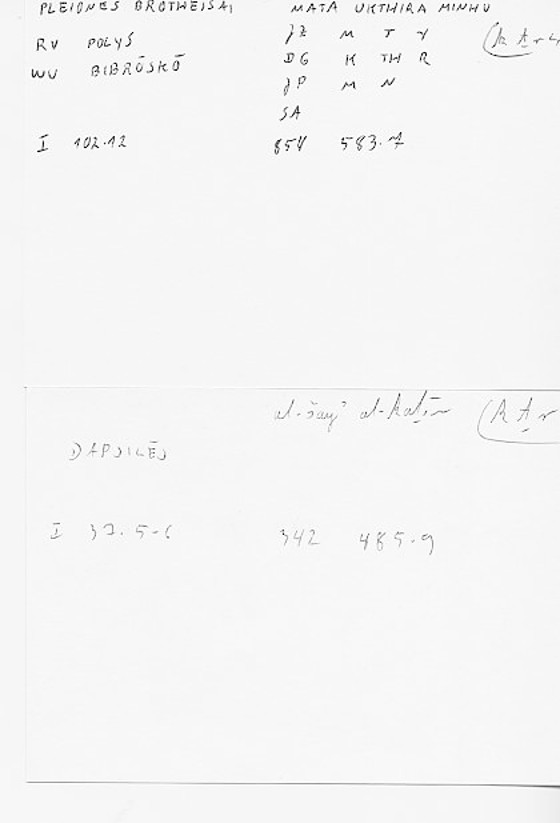 PLEIONES BROTHEISAI MATA UKTHIRA MINHU
JZ M T Y
RV POLYS (K T
DG K TH R
WU BIBRŌSKŌ
JP M N
SA
I 102.12 854 583.7
al-šayʾ al-kaṯīr (K T r
DAPSILĒS
I 37.5-6 342 485.9